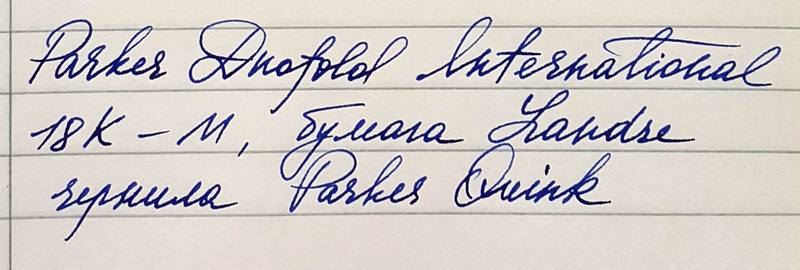 Parker Duofold International
18K – M, бумага Landre
чернила Parker Quink